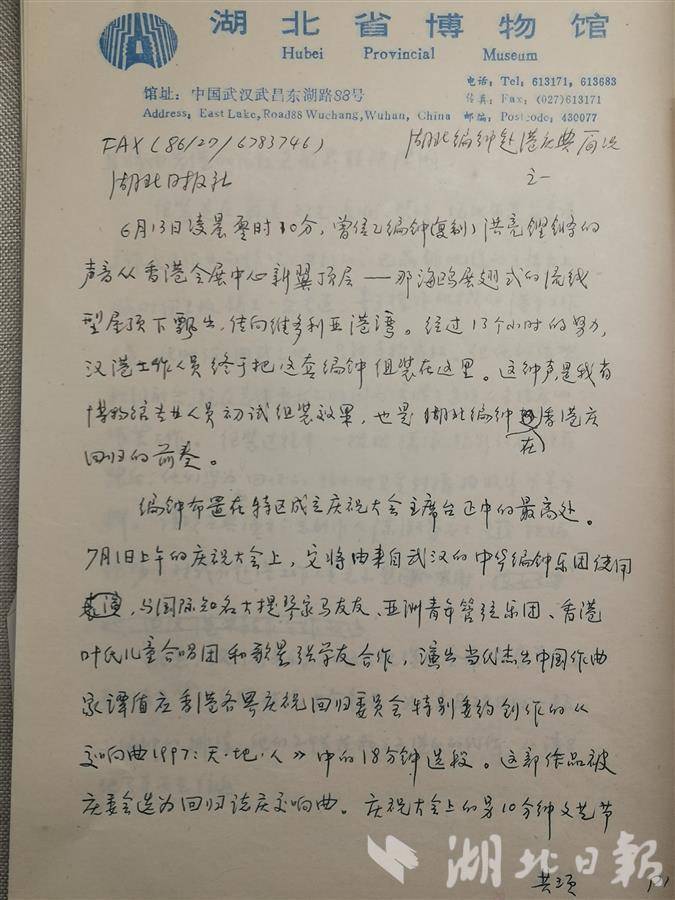 湖北省博物馆
Hubei Provincial Museum
电话: Tel: 613171, 613683
馆址: 中国武汉武昌东湖路88号
传真: Fax: (027)613171
Address: East Lake, Road88 Wuchang, Wuhan, China 邮编: Postcode: 430077
FAX (86/27/6783746)
湖北编钟赴港庆典简况
之一
湖北日报社
6月13日凌晨零时30分，曾侯乙编钟(复制)洪亮铿锵的
声音从香港会展中心新翼顶层——那海鸥展翅式的流线
型屋顶下飘出，传向维多利亚港湾。经过13个小时的努力，
汉港工作人员终于把这套编钟组装在这里。这钟声是我省
博物馆专业人员初试组装效果，也是湖北编钟在香港庆
回归的前奏。
编钟布置在特区成立庆祝大会主席台正中的最高处。
7月1日上午的庆祝大会上，它将由来自武汉的中华编钟乐团使用
表演，与国际知名大提琴家马友友、亚洲青年管弦乐团、香港
叶氏儿童合唱团和歌星张学友合作，演出当代杰出中国作曲
家谭盾应香港各界庆祝回归委员会特别委约创作的《
交响曲1997：天·地·人》中的18分钟选段。这部作品被
庆委会选为回归志庆交响曲。庆祝大会上的另10分钟文艺节
湖北日报
共3页